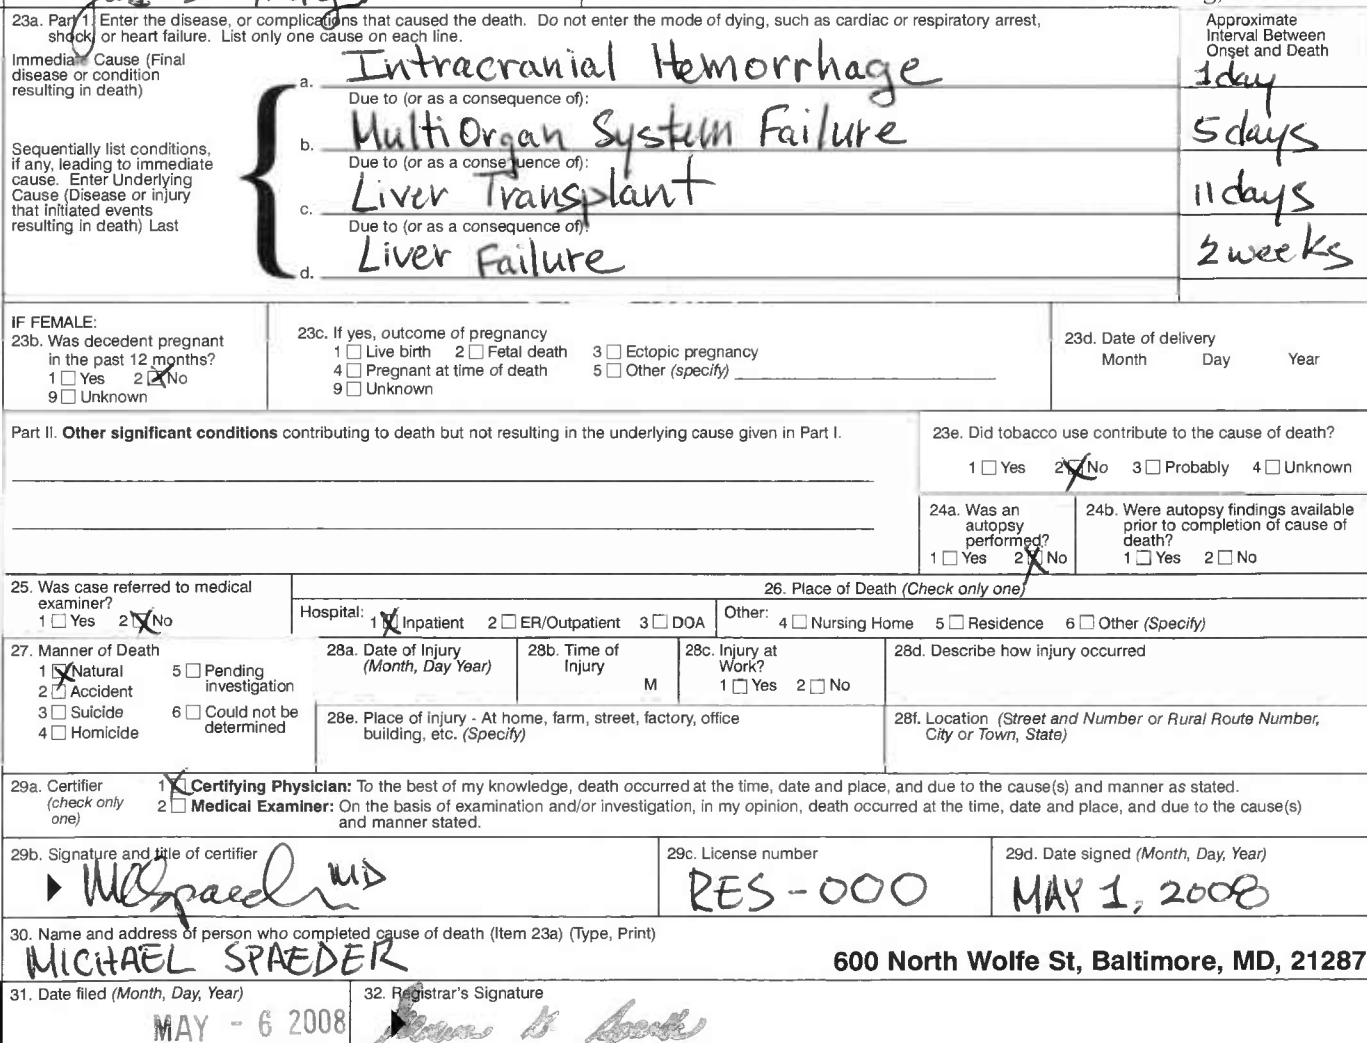 23a. Part 1. Enter the disease, or complications that caused the death. Do not enter the mode of dying, such as cardiac or respiratory arrest,
shock, or heart failure. List only one cause on each line.
Approximate
Interval Between
Onset and Death
Immediate Cause (Final
disease or condition
resulting in death)
a. Intracranial Hemorrhage 1 day
Due to (or as a consequence of):
b. MultiOrgan System Failure 5 days
Sequentially list conditions,
if any, leading to immediate
cause. Enter Underlying
Cause (Disease or injury
that initiated events
resulting in death) Last
Due to (or as a consequence of):
c. Liver Transplant 11 days
Due to (or as a consequence of):
d. Liver Failure 2 weeks
IF FEMALE:
23b. Was decedent pregnant
in the past 12 months?
1 Yes 2 No
9 Unknown
23c. If yes, outcome of pregnancy
1 Live birth 2 Fetal death 3 Ectopic pregnancy
4 Pregnant at time of death 5 Other (specify)
9 Unknown
23d. Date of delivery
Month Day Year
Part II. Other significant conditions contributing to death but not resulting in the underlying cause given in Part I.
23e. Did tobacco use contribute to the cause of death?
1 Yes 2 No 3 Probably 4 Unknown
24a. Was an
autopsy
performed?
1 Yes 2 No
24b. Were autopsy findings available
prior to completion of cause of
death?
1 Yes 2 No
25. Was case referred to medical
examiner?
1 Yes 2 No
26. Place of Death (Check only one)
Hospital: 1 Inpatient 2 ER/Outpatient 3 DOA Other: 4 Nursing Home 5 Residence 6 Other (Specify)
27. Manner of Death
1 Natural 5 Pending
investigation
2 Accident
3 Suicide 6 Could not be
determined
4 Homicide
28a. Date of Injury
(Month, Day Year)
28b. Time of
Injury
M
28c. Injury at
Work?
1 Yes 2 No
28d. Describe how injury occurred
28e. Place of injury - At home, farm, street, factory, office
building, etc. (Specify)
28f. Location (Street and Number or Rural Route Number,
City or Town, State)
29a. Certifier
(check only
one)
1 Certifying Physician: To the best of my knowledge, death occurred at the time, date and place, and due to the cause(s) and manner as stated.
2 Medical Examiner: On the basis of examination and/or investigation, in my opinion, death occurred at the time, date and place, and due to the cause(s)
and manner stated.
29b. Signature and title of certifier
MD
29c. License number
RES-000
29d. Date signed (Month, Day, Year)
MAY 1, 2008
30. Name and address of person who completed cause of death (Item 23a) (Type, Print)
MICHAEL SPAEDER 600 North Wolfe St, Baltimore, MD, 21287
31. Date filed (Month, Day, Year)
MAY - 6 2008
32. Registrar's Signature